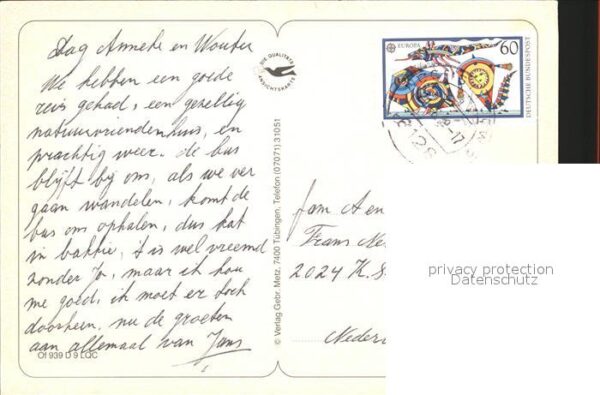 Dag Anneke en Wouter
We hebben een goede
reis gehad, een gezellig
natuurvriendenhuis, en
prachtig weer. de bus
blijft by ons, als we ver
gaan wandelen, komt de
bus ons ophalen, dus kat
in bakkie, t is wel vreemd
zonder Jo, maar ik hou
me goed, ik moet er toch
doorheen. nu de groeten
aan allemaal van Jans
Of 939 D 9 LQC
DIE QUALITÄTS
ANSICHTSKARTE
© Verlag Gebr. Metz, 7400 Tübingen, Telefon (07071) 31051
EUROPA
60
DEUTSCHE BUNDESPOST
Fam A en
Frans
2024 K.S
Neder
privacy protection
Datenschutz